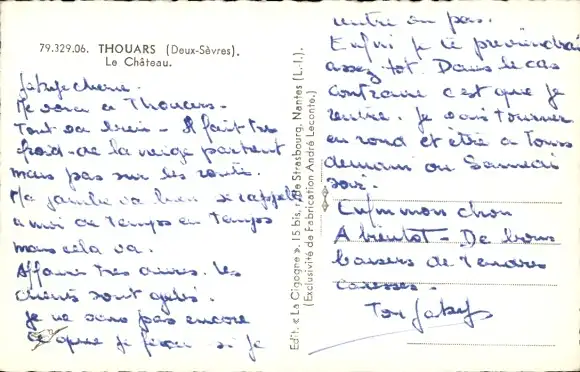 79.329.06. THOUARS (Deux-Sèvres).
Le Château.
cherie.
Me voici a Thouars.
Tout va bien - Il fait très
froid - de la neige partout
mais pas sur les routes.
Ma jambe va bien si rappelle
a moi de temps en temps
mais cela va.
Affaires très dures. les
clients sont
je ne sais pas encore
ce que je ferai si je
rentre ou pas.
Enfin je te previendrai
assez tot. Dans le cas
contraire c'est que je
rentre. je vais tourner
en rond et être a Tours
demain ou Samedi
soir.
Enfin mon chou
A bientot - De bons
baisers de tendres
caresses.
Ton
Edit. « La Cigogne », 15 bis, r. de Strasbourg, Nantes (L.-I.).
(Exclusivité de Fabrication André Leconte.)